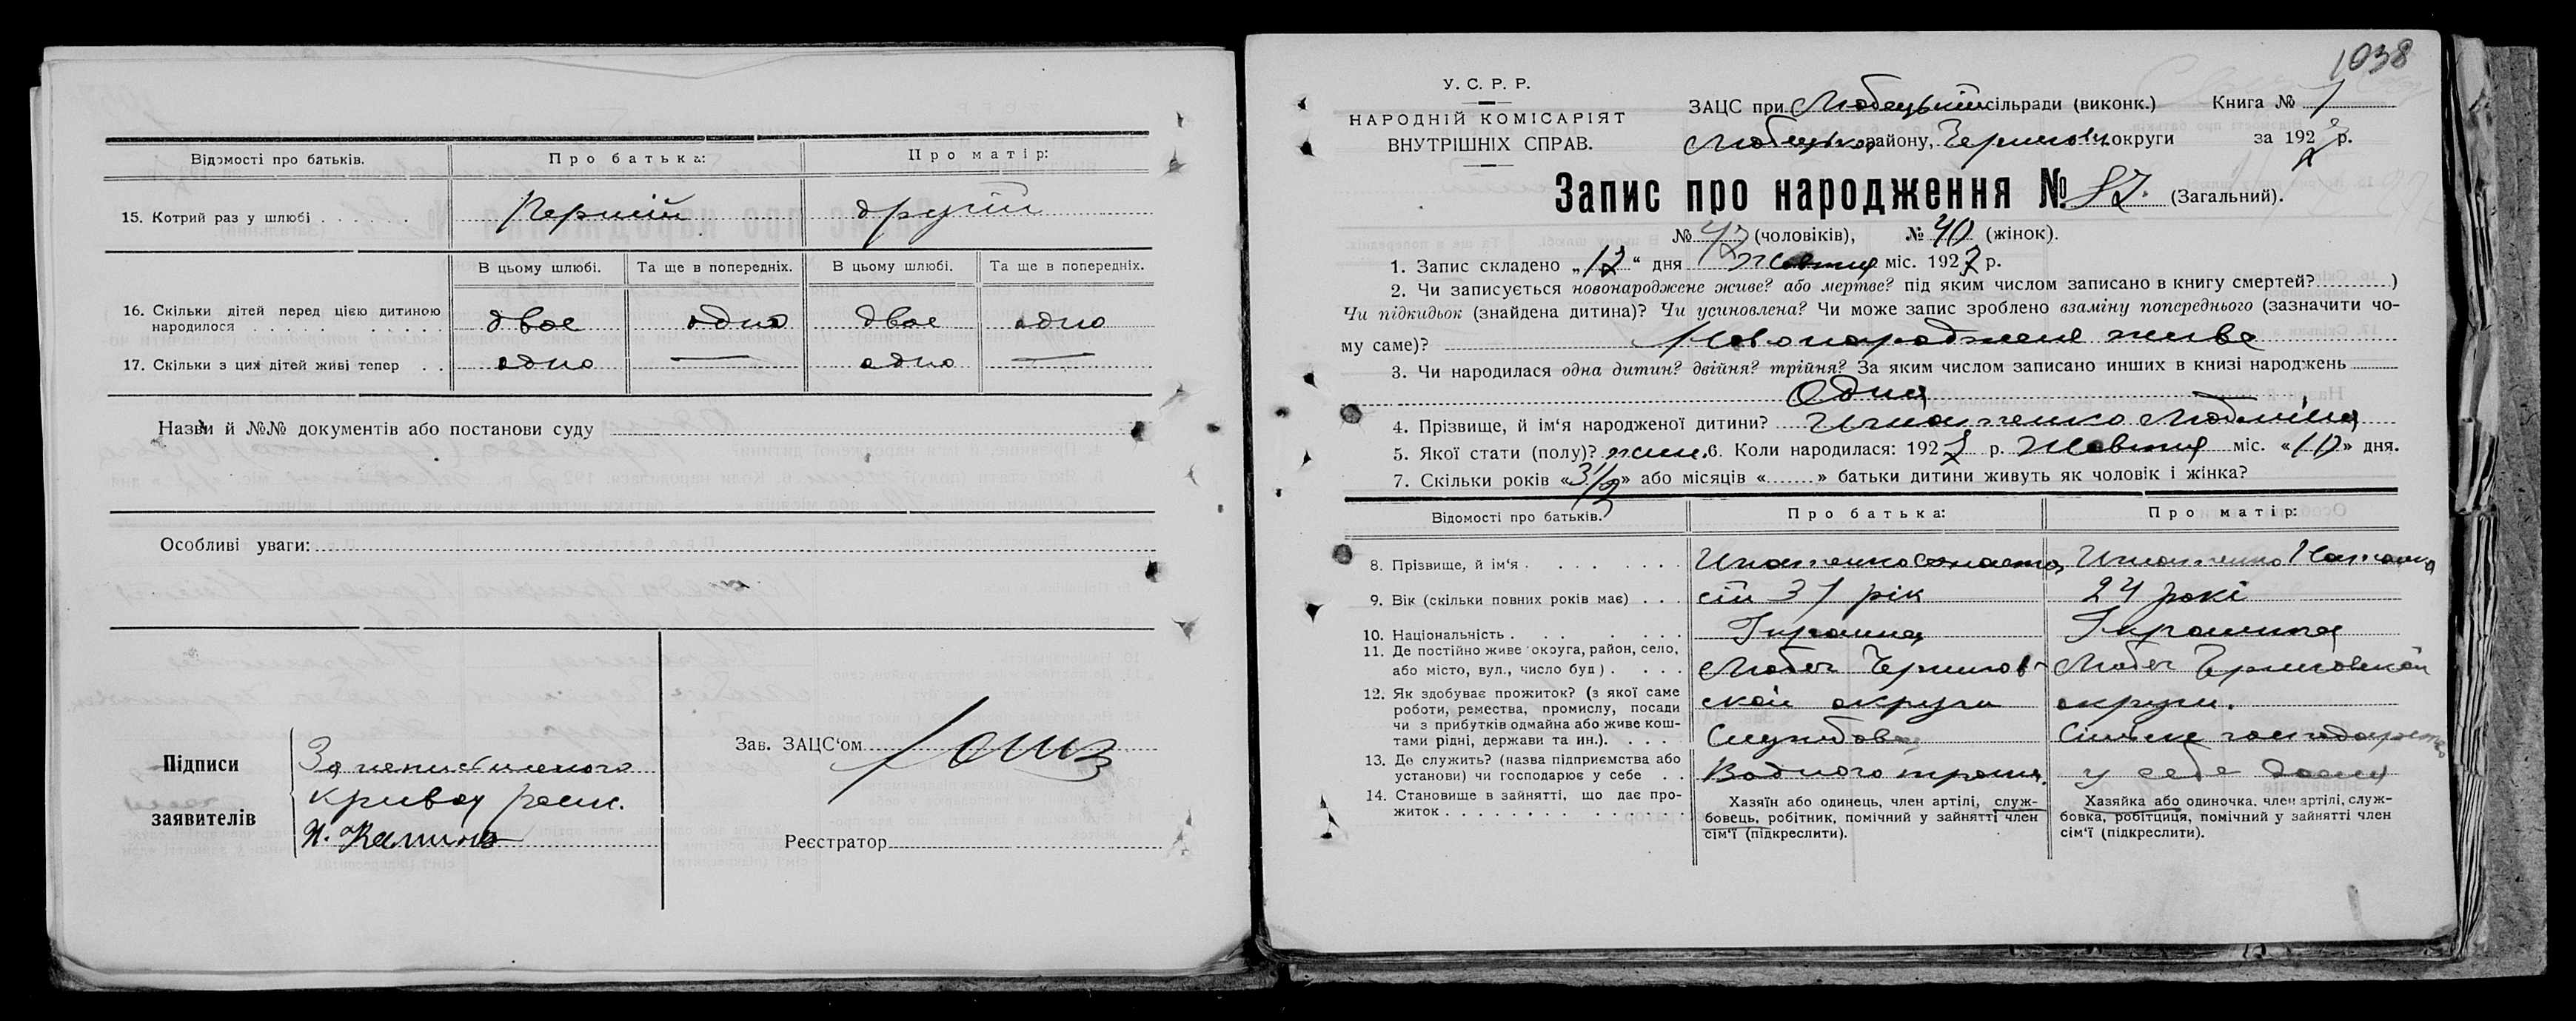 Відомості про батьків. Про батька: Про матір:
15. Котрий раз у шлюбі . . . . . . Перший другий
В цьому шлюбі. Та ще в попередніх. В цьому шлюбі. Та ще в попередніх.
16. Скільки дітей перед цією дитиною
народилося . . . . . . . . . . двое одно двое одно
17. Скільки з цих дітей живі тепер . . одно — одно —
Назви й №№ документів або постанови суду
Особливі уваги:
Підписи
заявителів
За неписьменого
Зав. ЗАЦС'ом
Реєстратор
1038
У. С. Р. Р.
НАРОДНІЙ КОМІСАРІЯТ
ВНУТРІШНІХ СПРАВ.
ЗАЦС при Любецький сільради (виконк.) Книга № 1
Любецько району, округи за 192 р.
Запис про народження № 82. (Загальний).
№ 42 (чоловіків), № 40 (жінок).
1. Запис складено „12“ дня Жовтня міс. 1927 р.
2. Чи записується новонароджене живе? або мертве? під яким числом записано в книгу смертей? )
Чи підкидьок (знайдена дитина)? Чи усиновлена? Чи може запис зроблено взаміну попереднього (зазначити чо-
му саме)? Новонароджене живе
3. Чи народилася одна дитин? двійня? трійня? За яким числом записано инших в книзі народжень
Одна
4. Прізвище, й ім'я народженої дитини? Игнатенко Людміла
5. Якої стати (полу)? жін. 6. Коли народилася: 1927 р. Жовтня міс. «10» дня.
7. Скільки років «3½» або місяців « » батьки дитини живуть як чоловік і жінка?
Відомості про батьків. Про батька: Про матір:
8. Прізвище, й ім'я . . . . . . . Игнатенко Игнатенко
9. Вік (скільки повних років має) . . . 31 рік 24 рокі
10. Національність . . . . . . .
11. Де постійно живе округа, район, село,
або місто, вул., число буд) . . . . Любеч Чернигов- Любеч
12. Як здобуває прожиток? (з якої саме
роботи, ремества, промислу, посади ской округи округи.
чи з прибутків одмайна або живе кош-
тами рідні, держави та ин.). . . . Сільске господарство
13. Де служить? (назва підприємства або
установи) чи господарює у себе . . Водного у себе дома
14. Становище в зайнятті, що дає про-
житок . . . . . . . . . . . . . .
Хазяїн або одинець, член артілі, служ-
бовець, робітник, помічний у зайнятті член
сім'ї (підкреслити).
Хазяйка або одиночка, член артілі, служ-
бовка, робітциця, помічний у зайнятті член
сім'ї (підкреслити).